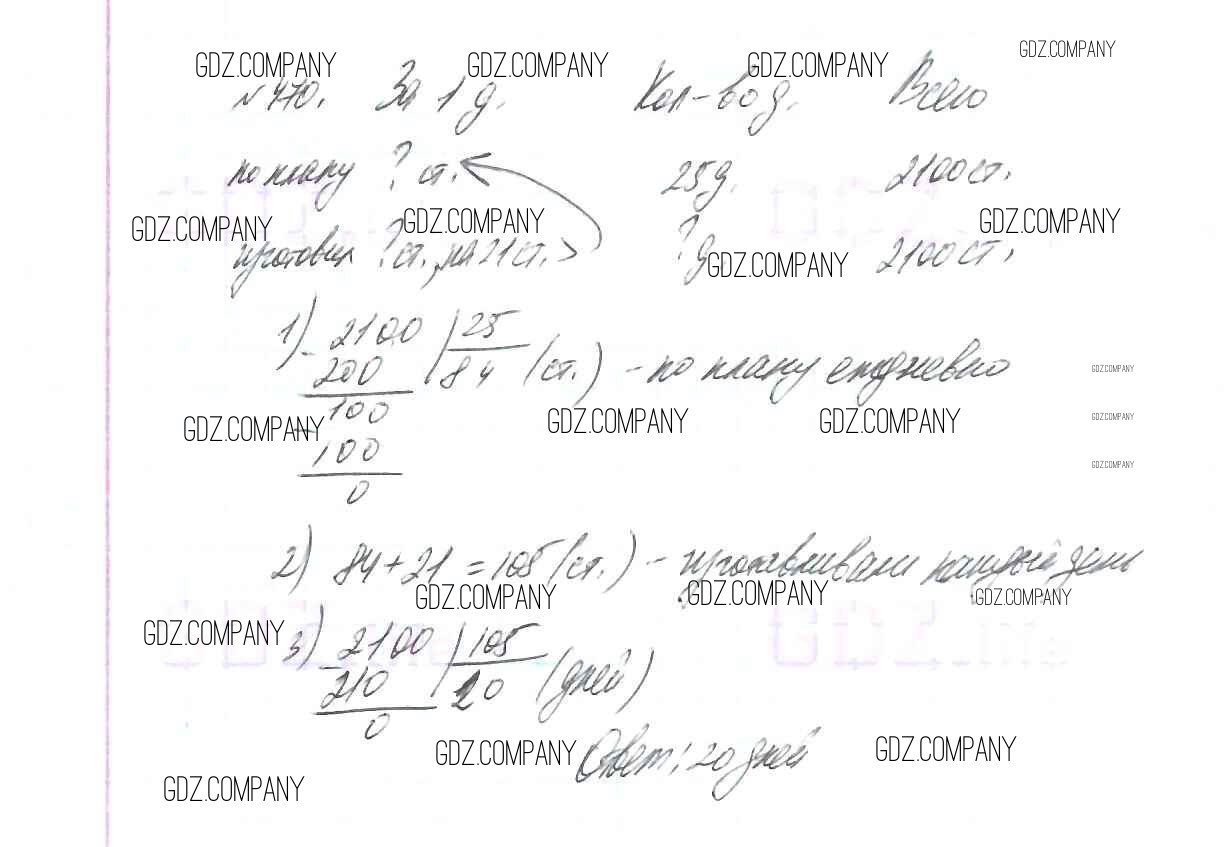 GDZ.COMPANY GDZ.COMPANY GDZ.COMPANY GDZ.COMPANY
№470. За 1 д. Кол-во д. Всего
по плану ? ст. 25 д. 2100 ст.
GDZ.COMPANY GDZ.COMPANY GDZ.COMPANY
изготовил ? ст., на 21 ст. > ? д. 2100 ст.
GDZ.COMPANY
1) - 2100 | 25
200 | 84 (ст.) - по плану ежедневно
GDZ.COMPANY
100
GDZ.COMPANY GDZ.COMPANY GDZ.COMPANY GDZ.COMPANY
- 100
GDZ.COMPANY
0
2) 84 + 21 = 105 (ст.) - изготавливали каждый день
GDZ.COMPANY GDZ.COMPANY GDZ.COMPANY
GDZ.COMPANY
3) - 2100 | 105
210 | 20 (дней)
0
GDZ.COMPANY Ответ: 20 дней GDZ.COMPANY
GDZ.COMPANY